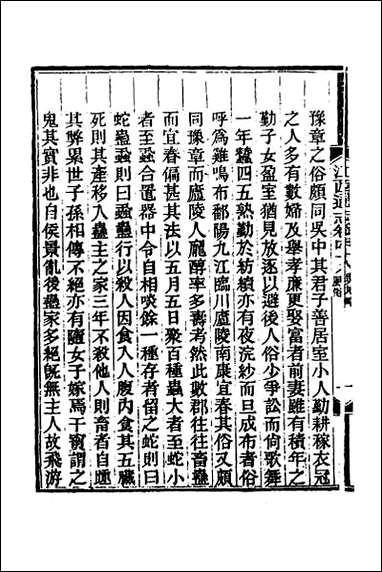 豫章之俗頗同吳中其君子善居室小人勤耕稼衣冠
之人多有數婦及舉孝廉更娶富者前妻雖有積年之
勤子女盈室猶見放逐以避後人俗少爭訟而尚歌舞
一年蠶四五熟勤於紡績亦有夜浣紗而旦成布者俗
呼爲雞鳴布鄱陽九江臨川廬陵南康宜春其俗又頗
同豫章而廬陵人龎醇率多壽考然此數郡往往畜蠱
而宜春偏甚其法以五月五日聚百種蟲大者至蛇小
者至蝨合置器中令自相啖餘一種存者留之蛇則曰
蛇蠱蝨則曰蝨蠱行以殺人因食入人腹內食其五臟
死則其產移入蠱主之家三年不殺他人則畜者自踵
其弊累世子孫相傳不絕亦有隨女子嫁焉干寶謂之
鬼其實非也自侯景亂後蠱家多絕旣無主人故飛游